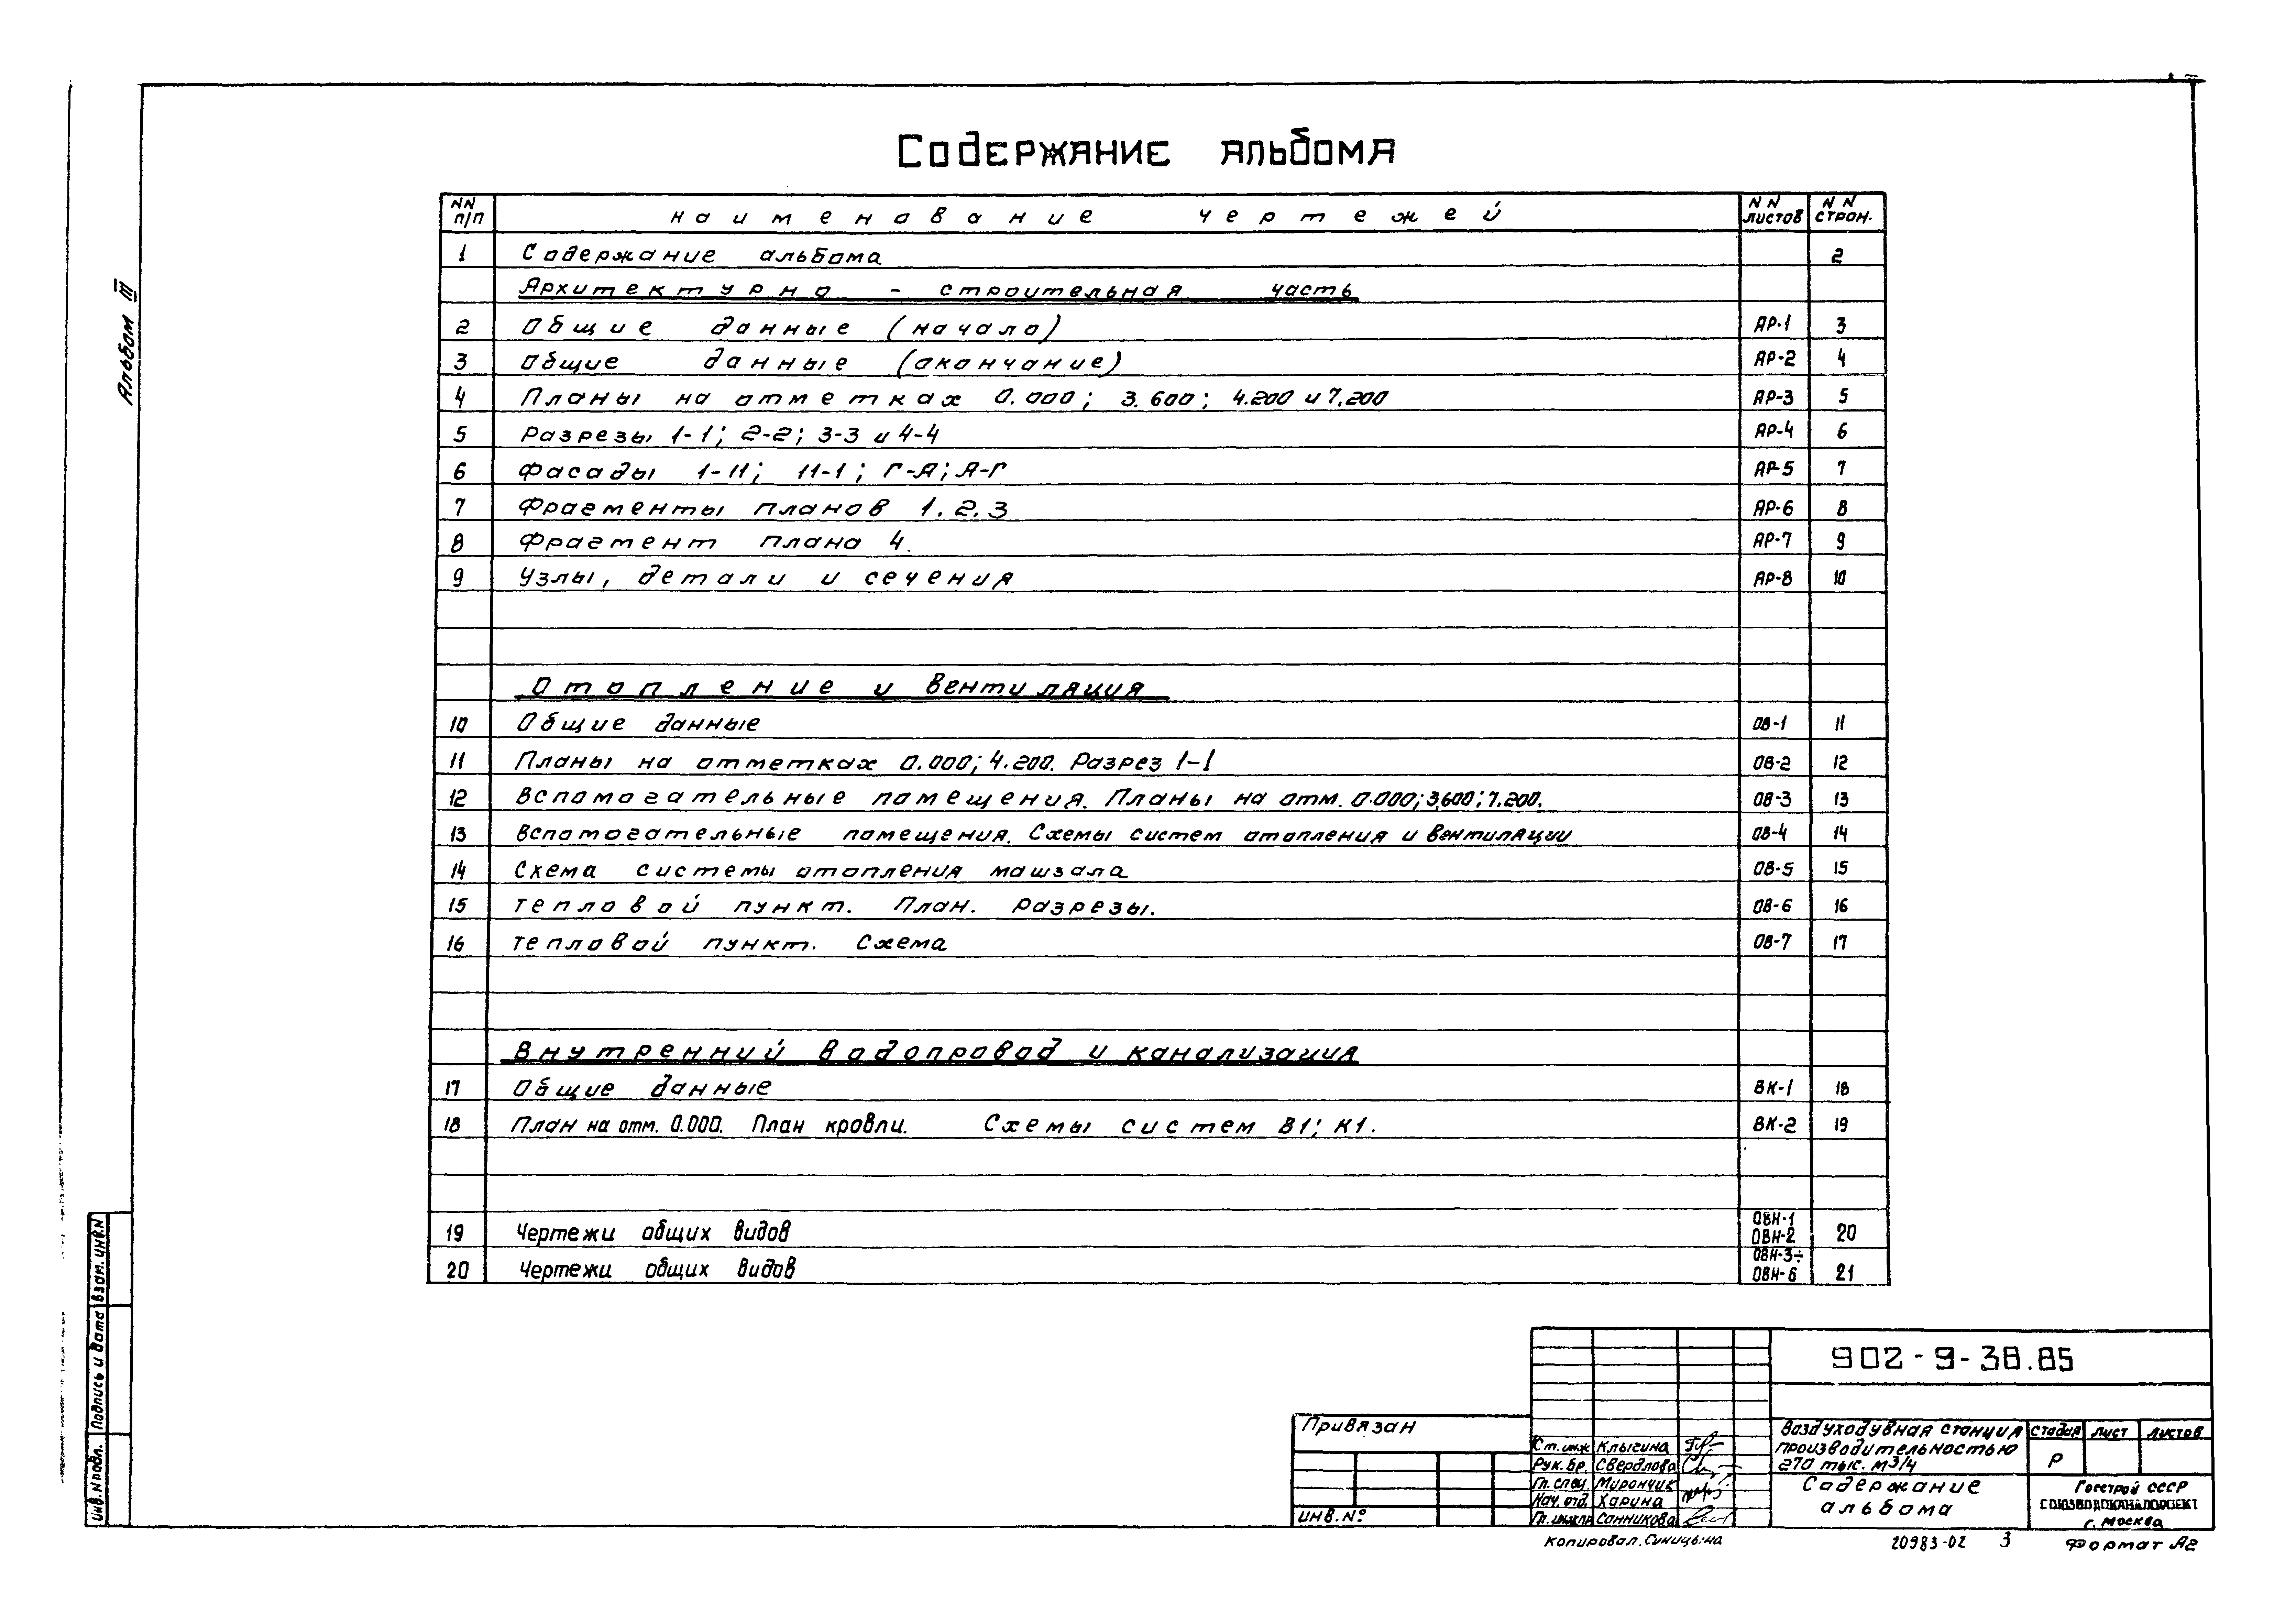 Содержание альбома
Альбом III
NN п/п Наименование чертежей NN листов NN стран.
1 Содержание альбома 2
Архитектурно - строительная часть
2 Общие данные (начало) АР-1 3
3 Общие данные (окончание) АР-2 4
4 Планы на отметках 0.000; 3.600; 4.200 и 7.200 АР-3 5
5 Разрезы 1-1; 2-2; 3-3 и 4-4 АР-4 6
6 Фасады 1-11; 11-1; Г-А; А-Г АР-5 7
7 Фрагменты планов 1.2.3 АР-6 8
8 Фрагмент плана 4. АР-7 9
9 Узлы, детали и сечения АР-8 10
Отопление и вентиляция
10 Общие данные ОВ-1 11
11 Планы на отметках 0.000; 4.200. Разрез 1-1 ОВ-2 12
12 Вспомогательные помещения. Планы на отм. 0.000; 3.600; 7.200. ОВ-3 13
13 Вспомогательные помещения. Схемы систем отопления и вентиляции ОВ-4 14
14 Схема системы отопления машзала ОВ-5 15
15 Тепловой пункт. План. Разрезы. ОВ-6 16
16 Тепловой пункт. Схема ОВ-7 17
Внутренний водопровод и канализация
17 Общие данные ВК-1 18
18 План на отм. 0.000. План кровли. Схемы систем В1; К1. ВК-2 19
19 Чертежи общих видов ОВН-1 ОВН-2 20
20 Чертежи общих видов ОВН-3÷ ОВН-6 21
Инв. N подл. Подпись и дата Взам. инв. N
902-9-38.85
Привязан
Инв. №
Ст. инж Клыгина
Рук. бр. Свердлова
Гл. спец. Мирончик
Нач. отд. Харина
Гл. инж.пр Санникова
Воздуходувная станция
производительностью
270 тыс. м3/ч
Стадия Лист Листов
Р
Содержание
альбома
Госстрой СССР
СОЮЗВОДОКАНАЛПРОЕКТ
г. Москва
Копировал. Синицына
20983-02 3
Формат А2